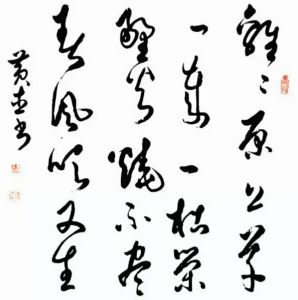 離〻原上草
一歲一枯榮
野火燒不盡
春風吹又生
黄书